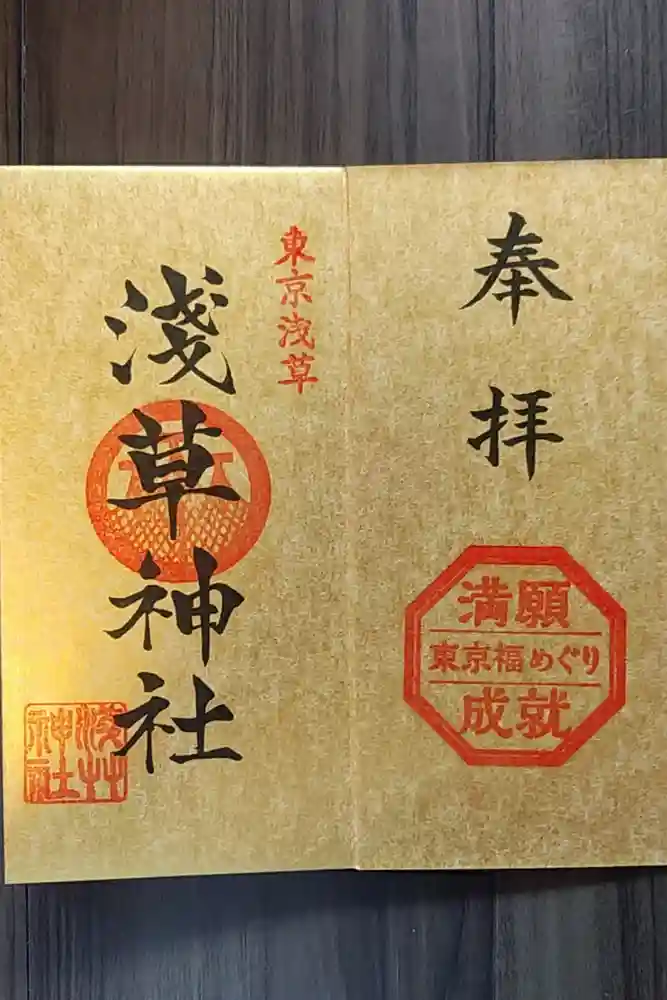 奉拝
満願
東京福めぐり
成就
東京浅草
淺草神社
淺草
神社